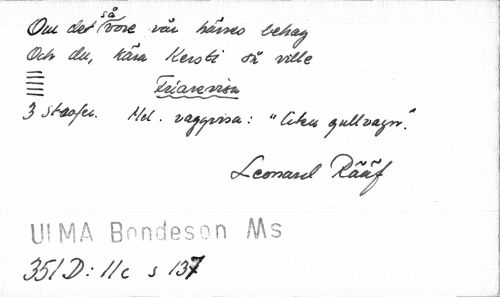 så
Om det vore vår härres behag
Och du, kära Kersti så ville
Friarevisa
3 Strofer. Mel. vaggvisa: "liten gullvagn".
Leonard Rääf
ULMA Bondeson Ms
351 D: 11c s 137